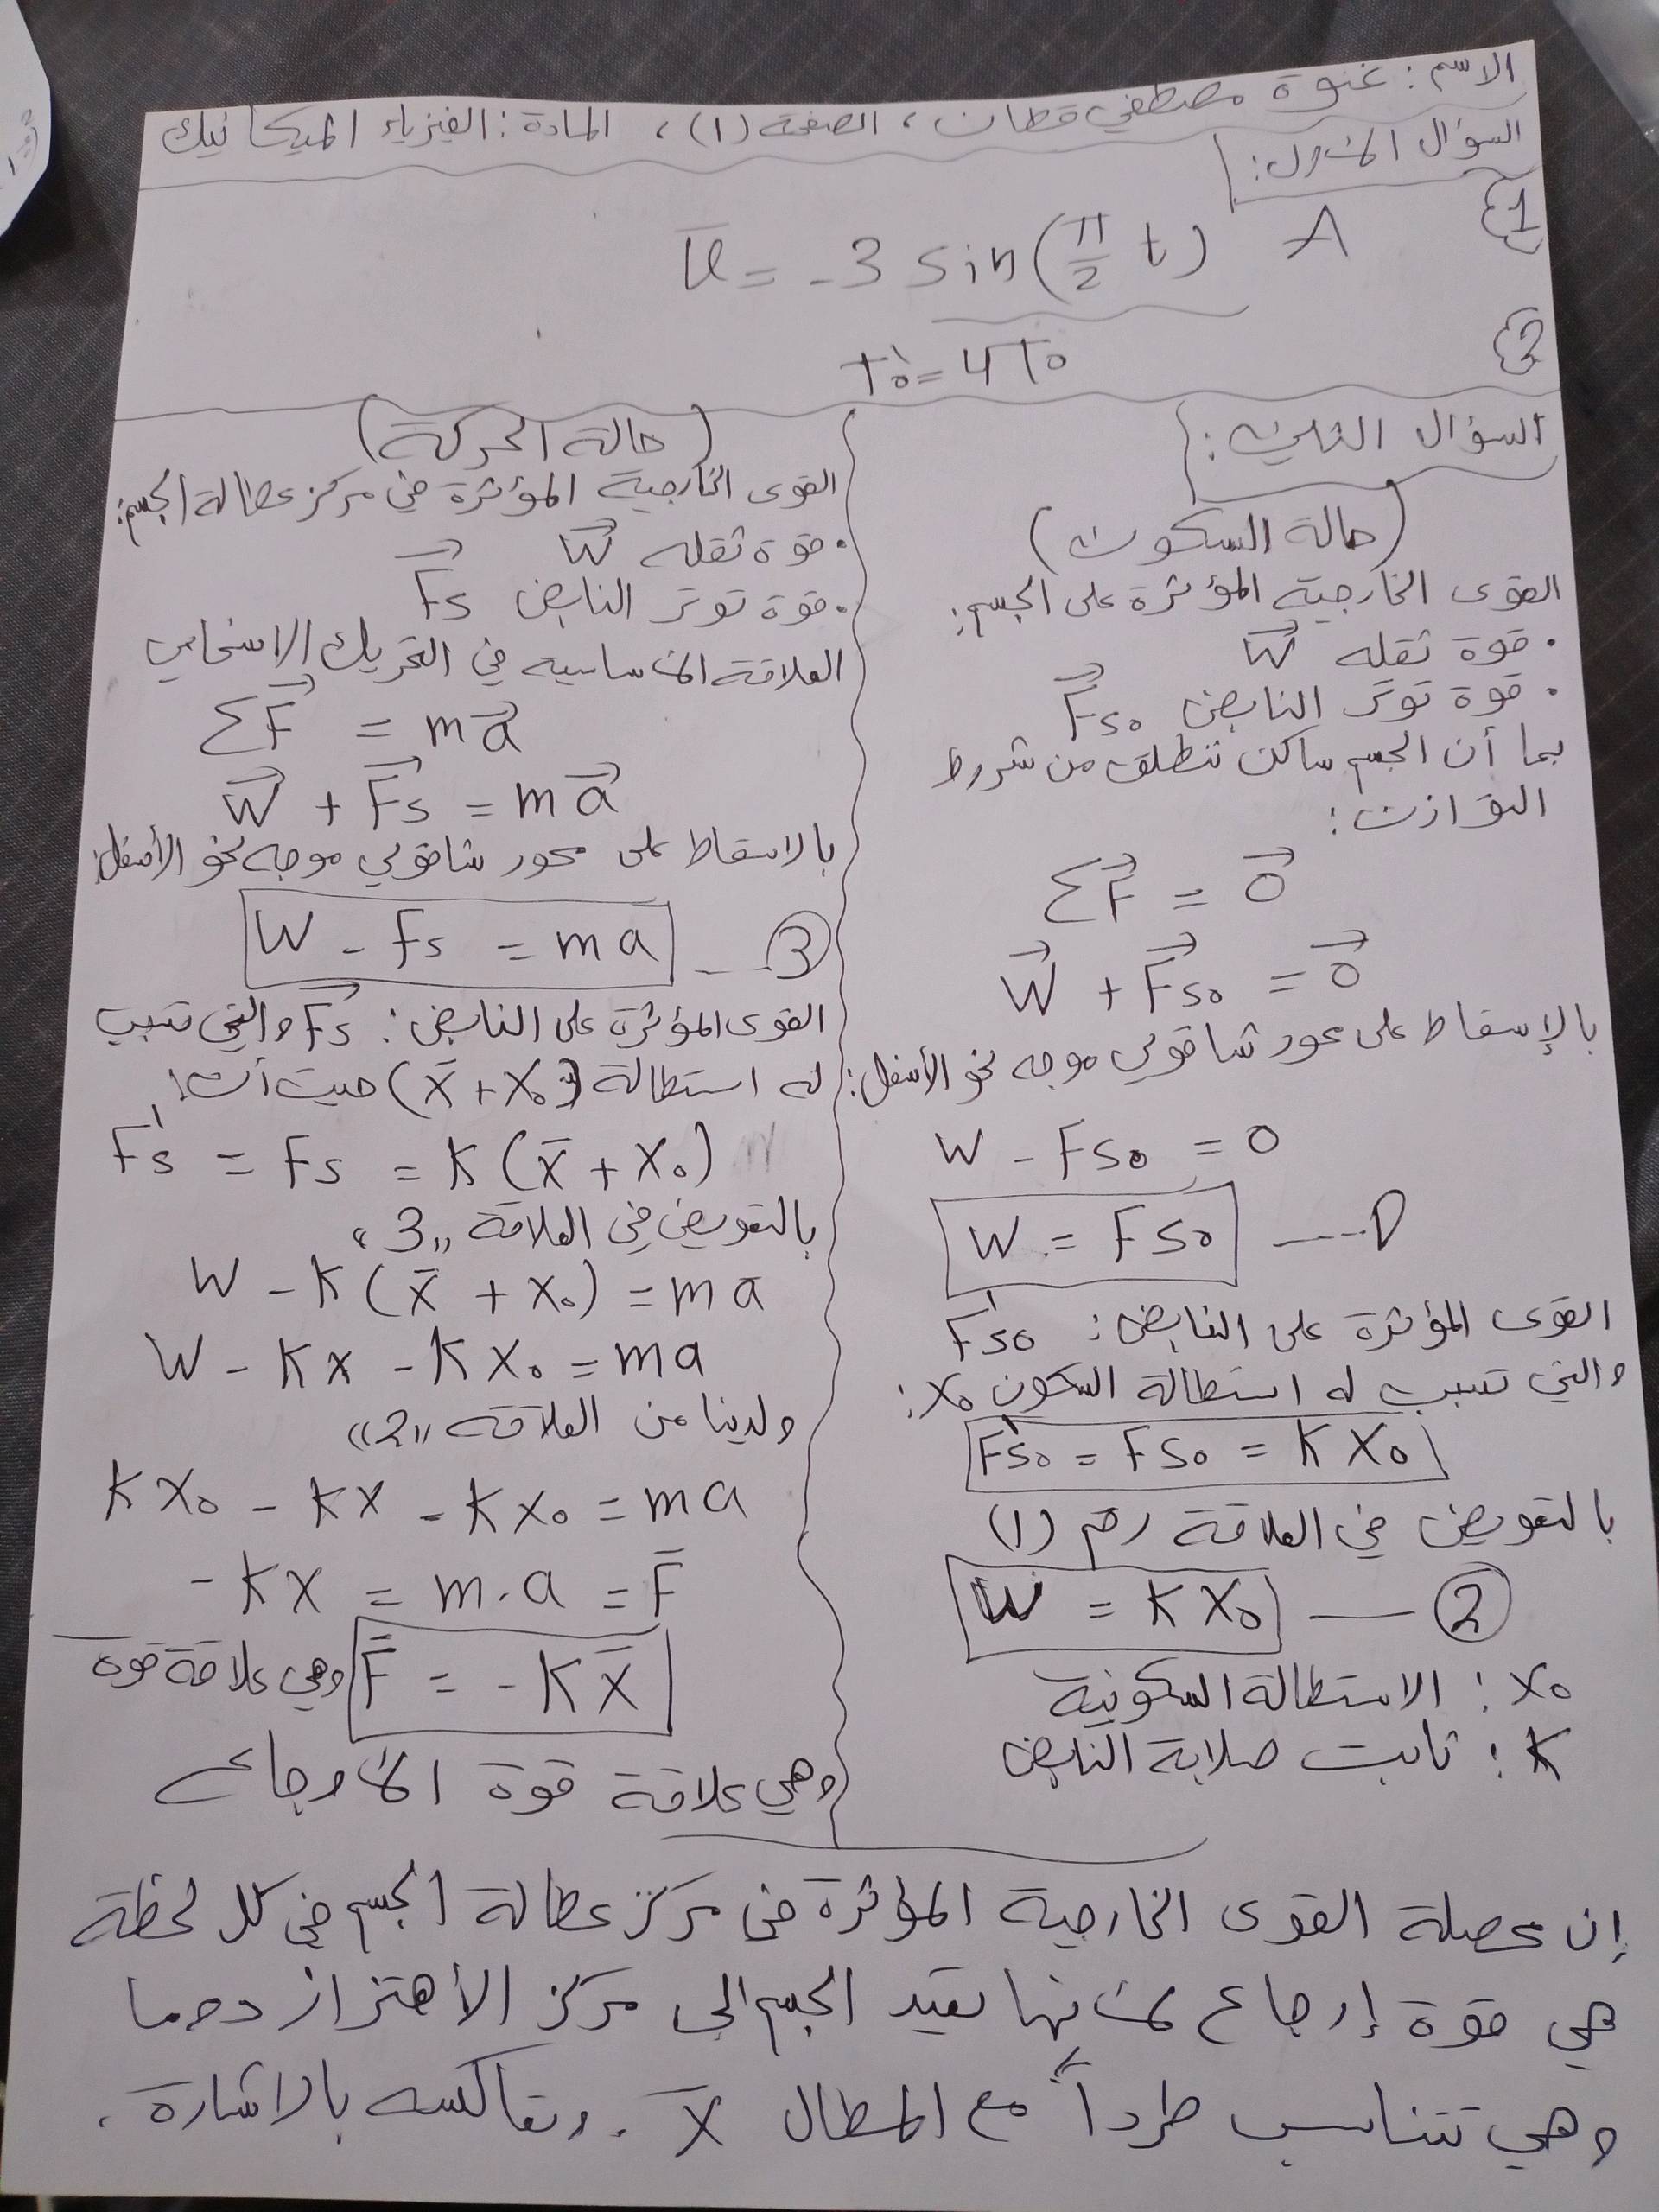 الاسم: غنوة مصطفى قطان، الصفحة (١)، المادة: الفيزياء الميكانيك
السؤال الأول:
1
ῡ = -3 sin(π/2 t) A
2
T₀' = 4T₀
السؤال الثاني:
(حالة السكون)
القوى الخارجية المؤثرة على الجسم:
. قوة ثقله W⃗
. قوة توتر النابض F⃗s₀
بما أن الجسم ساكن ننطلق من شرط
التوازن:
ΣF⃗ = 0⃗
W⃗ + F⃗s₀ = 0⃗
بالإسقاط على محور شاقولي موجه نحو الأسفل:
W - Fs₀ = 0
W = Fs₀ ---- 1
القوى المؤثرة على النابض: F's₀
والتي تسبب له استطالة السكون x₀:
F's₀ = Fs₀ = K X₀
بالتعويض في العلاقة رقم (١)
W = K X₀ —— 2
X₀: الاستطالة السكونية
K: ثابت صلابة النابض
(حالة الحركة)
القوى الخارجية المؤثرة في مركز عطالة الجسم:
. قوة ثقله W⃗
. قوة توتر النابض F⃗s
العلاقة الأساسية في التحريك الانسحابي
ΣF⃗ = ma⃗
W⃗ + F⃗s = ma⃗
بالاسقاط على محور شاقولي موجه نحو الأسفل:
W - Fs = ma -- 3
القوى المؤثرة على النابض: F⃗s والتي تسبب
له استطالة (x̄ + X₀) حيث أن:
F's = Fs = K (x̄ + X₀)
بالتعويض في العلاقة "3"
W - K (x̄ + X₀) = ma
W - Kx - KX₀ = ma
ولدينا من العلاقة "2"
KX₀ - KX - KX₀ = ma
- KX = m.a = F̄
F̄ = - K X̄ وهي علاقة قوة
وهي علاقة قوة الأرجاع
إن محصلة القوى الخارجية المؤثرة في مركز عطالة الجسم في كل لحظة
هي قوة إرجاع لأنها تعيد الجسم إلى مركز الأهتزاز دوما
وهي تتناسب طرداً مع المطال X̄. وتعاكسه بالاشارة.